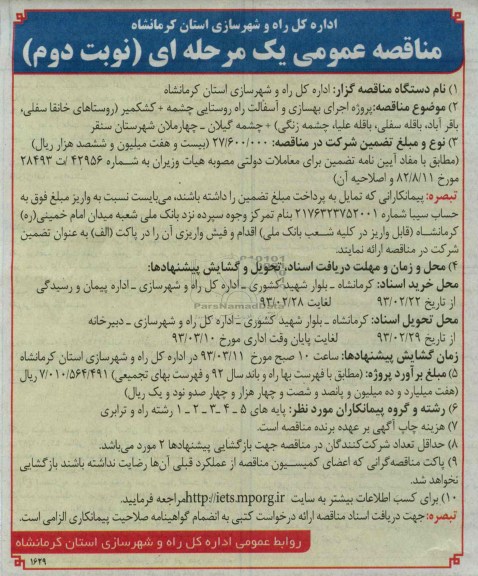 اداره کل راه و شهرسازی استان کرمانشاه
مناقصه عمومی یک مرحله ای (نوبت دوم)
۱) نام دستگاه مناقصه گزار: اداره کل راه و شهرسازی استان کرمانشاه
۲) موضوع مناقصه:پروژه اجرای بهسازی و آسفالت راه روستایی چشمه + کشکمیر (روستاهای خانقا سفلی،
باقر آباد، باقله سفلی، باقله علیا، چشمه زنگی) + چشمه گیلان ـ چهارملان شهرستان سنقر
۳) نوع و مبلغ تضمین شرکت در مناقصه: ۲۷/۶۰۰/۰۰۰ (بیست و هفت میلیون و ششصد هزار ریال)
(مطابق با مفاد آیین نامه تضمین برای معاملات دولتی مصوبه هیات وزیران به شماره ۴۲۹۵۶ /ت ۲۸۴۹۳
مورخ ۸۲/۸/۱۱ و اصلاحیه آن)
تبصره: پیمانکارانی که تمایل به پرداخت مبلغ تضمین را داشته باشند، می‌بایست نسبت به واریز مبلغ فوق به
حساب سیبا شماره ۲۱۷۶۳۲۳۷۵۲۰۰۱ بنام تمرکز وجوه سپرده نزد بانک ملی شعبه میدان امام خمینی(ره)
کرمانشاه (قابل واریز در کلیه شعب بانک ملی) اقدام و فیش واریزی آن را در پاکت (الف) به عنوان تضمین
شرکت در مناقصه ارائه نمایند.
۴) محل و زمان و مهلت دریافت اسناد، تحویل و گشایش پیشنهادها:
محل خرید اسناد: کرمانشاه ـ بلوار شهید کشوری ـ اداره کل راه و شهرسازی ـ اداره پیمان و رسیدگی
از تاریخ ۹۳/۰۲/۲۲ لغایت ۹۳/۰۲/۲۸
محل تحویل اسناد: کرمانشاه ـ بلوار شهید کشوری ـ اداره کل راه و شهرسازی ـ دبیرخانه
از تاریخ ۹۳/۰۲/۲۹ لغایت پایان وقت اداری مورخ ۹۳/۰۳/۱۰
زمان گشایش پیشنهادها: ساعت ۱۰ صبح مورخ ۹۳/۰۳/۱۱ در اداره کل راه و شهرسازی استان کرمانشاه
۵) مبلغ برآورد پروژه: (مطابق با فهرست بها راه و باند سال ۹۲ و فهرست بهای تجمیعی) ۷/۰۱۰/۵۶۴/۴۹۱ ریال
(هفت میلیارد و ده میلیون و پانصد و شصت و چهار هزار و چهار صدو نود و یک ریال)
۶) رشته و گروه پیمانکاران مورد نظر: پایه های ۵ ـ ۴ ـ ۳ ـ ۲ ـ ۱ رشته راه و ترابری
۷) هزینه چاپ آگهی بر عهده برنده مناقصه است.
۸) حداقل تعداد شرکت‌کنندگان در مناقصه جهت بازگشایی پیشنهادها ۲ مورد می‌باشد.
۹) پاکت مناقصه‌گرانی که اعضای کمیسیون مناقصه از عملکرد قبلی آن‌ها رضایت نداشته باشند بازگشایی
نخواهد شد.
۱۰) برای کسب اطلاعات بیشتر به سایت http://iets.mporg.ir مراجعه فرمایید.
تبصره:جهت دریافت اسناد مناقصه ارائه درخواست کتبی به انضمام گواهینامه صلاحیت پیمانکاری الزامی است.
روابط عمومی اداره کل راه و شهرسازی استان کرمانشاه
۱۶۲۹